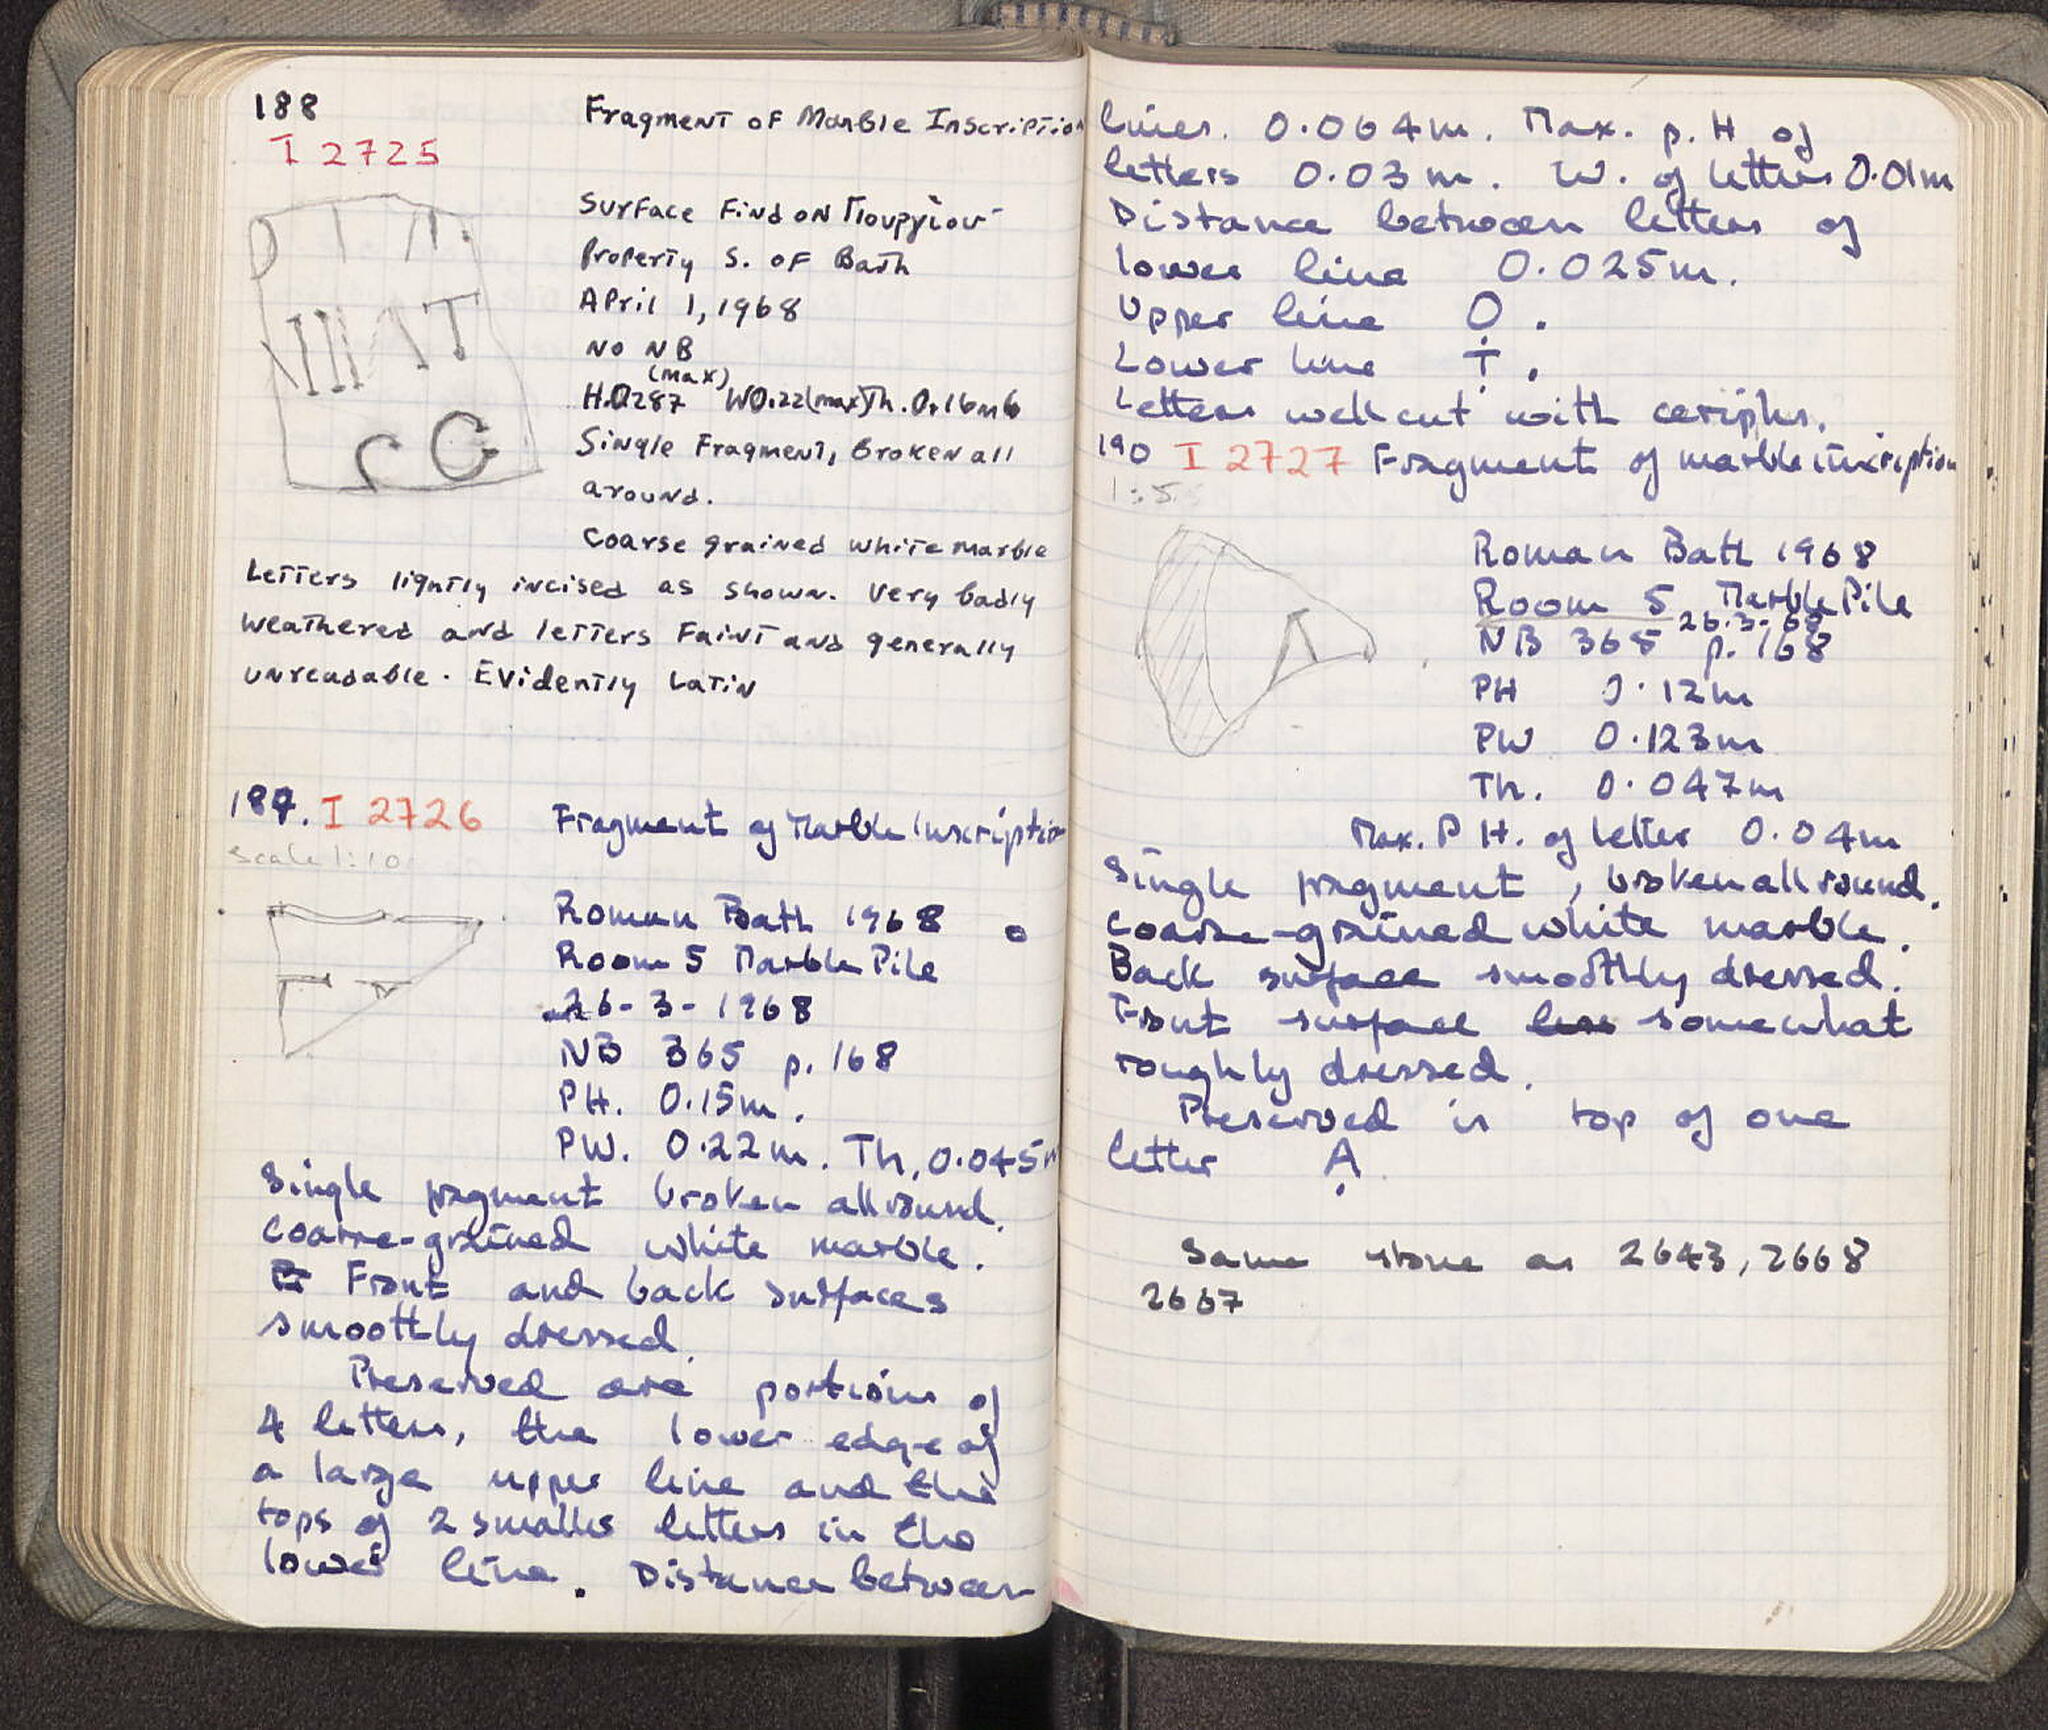 188 Fragment of Marble Inscription
I 2725
Surface Find on Μουργιου
Property S. of Bath
April 1, 1968
No NB
(max)
H.0287 W0.22(max)Th. 0.16m
Single Fragment, Broken all
around.
Coarse grained white marble
Letters lightly incised as shown. Very badly
weathered and letters faint and generally
unreadable. Evidently Latin
189. I 2726 Fragment of Marble Inscription
Scale 1:10
Roman Bath 1968
Room 5 Marble Pile
26-3-1968
NB 365 p. 168
PH. 0.15m.
PW. 0.22m. Th. 0.045m
Single fragment broken all round.
Coarse-grained white marble.
Front and back surfaces
smoothly dressed.
Preserved are portions of
4 letters, the lower edge of
a large upper line and the
tops of 2 smaller letters in the
lower line. Distance between
lines. 0.064m. Max. p. H of
letters 0.03m. W. of letters 0.01m
Distance between letters of
lower line 0.025m.
Upper line Ọ.
Lower line Ṭ.
Letters well cut with ceriphs.
190 I 2727 Fragment of marble inscription
1:5
Roman Bath 1968
Room 5 Marble Pile
26-3-68
NB 365 p. 168
PH 0.12m
PW 0.123m
Th. 0.047m
Max. P H. of letter 0.04m
Single fragment, broken all round.
Coarse-grained white marble.
Back surface smoothly dressed.
Front surface less somewhat
roughly dressed.
Preserved is top of one
letter Ạ
Same stone as 2643, 2668
2667